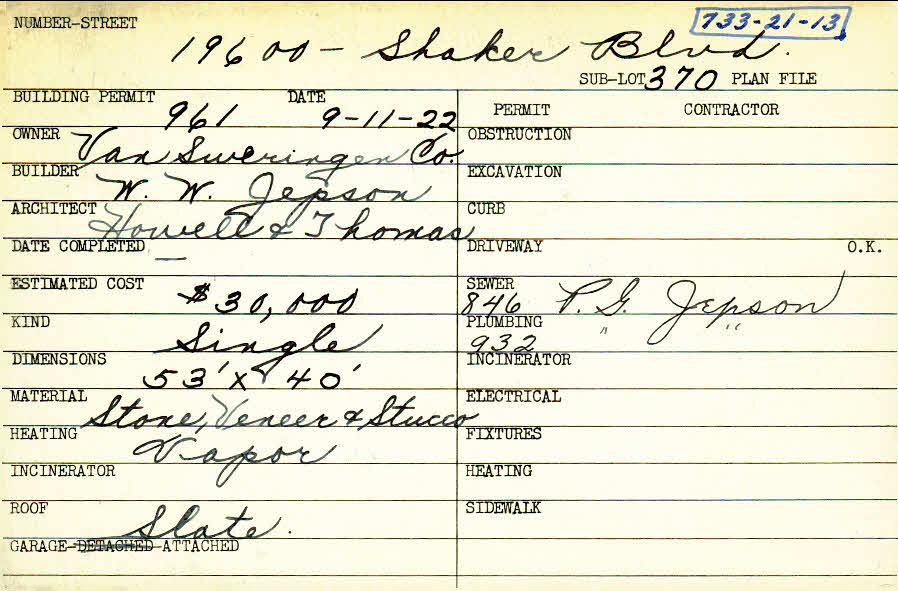 NUMBER-STREET 733-21-13
19600- Shaker Blvd.
SUB-LOT 370 PLAN FILE
BUILDING PERMIT 961 DATE 9-11-22
PERMIT CONTRACTOR
OWNER Van Sweringen Co.
OBSTRUCTION
BUILDER W. W. Jepson
EXCAVATION
ARCHITECT Howell & Thomas
CURB
DATE COMPLETED —
DRIVEWAY O.K.
ESTIMATED COST $30,000
SEWER 846 P. G. Jepson
KIND Single
PLUMBING 932 " "
DIMENSIONS 53' x 40'
INCINERATOR
MATERIAL Stone, Veneer & Stucco
ELECTRICAL
HEATING Vapor
FIXTURES
INCINERATOR
HEATING
ROOF Slate.
SIDEWALK
GARAGE-DETACHED-ATTACHED